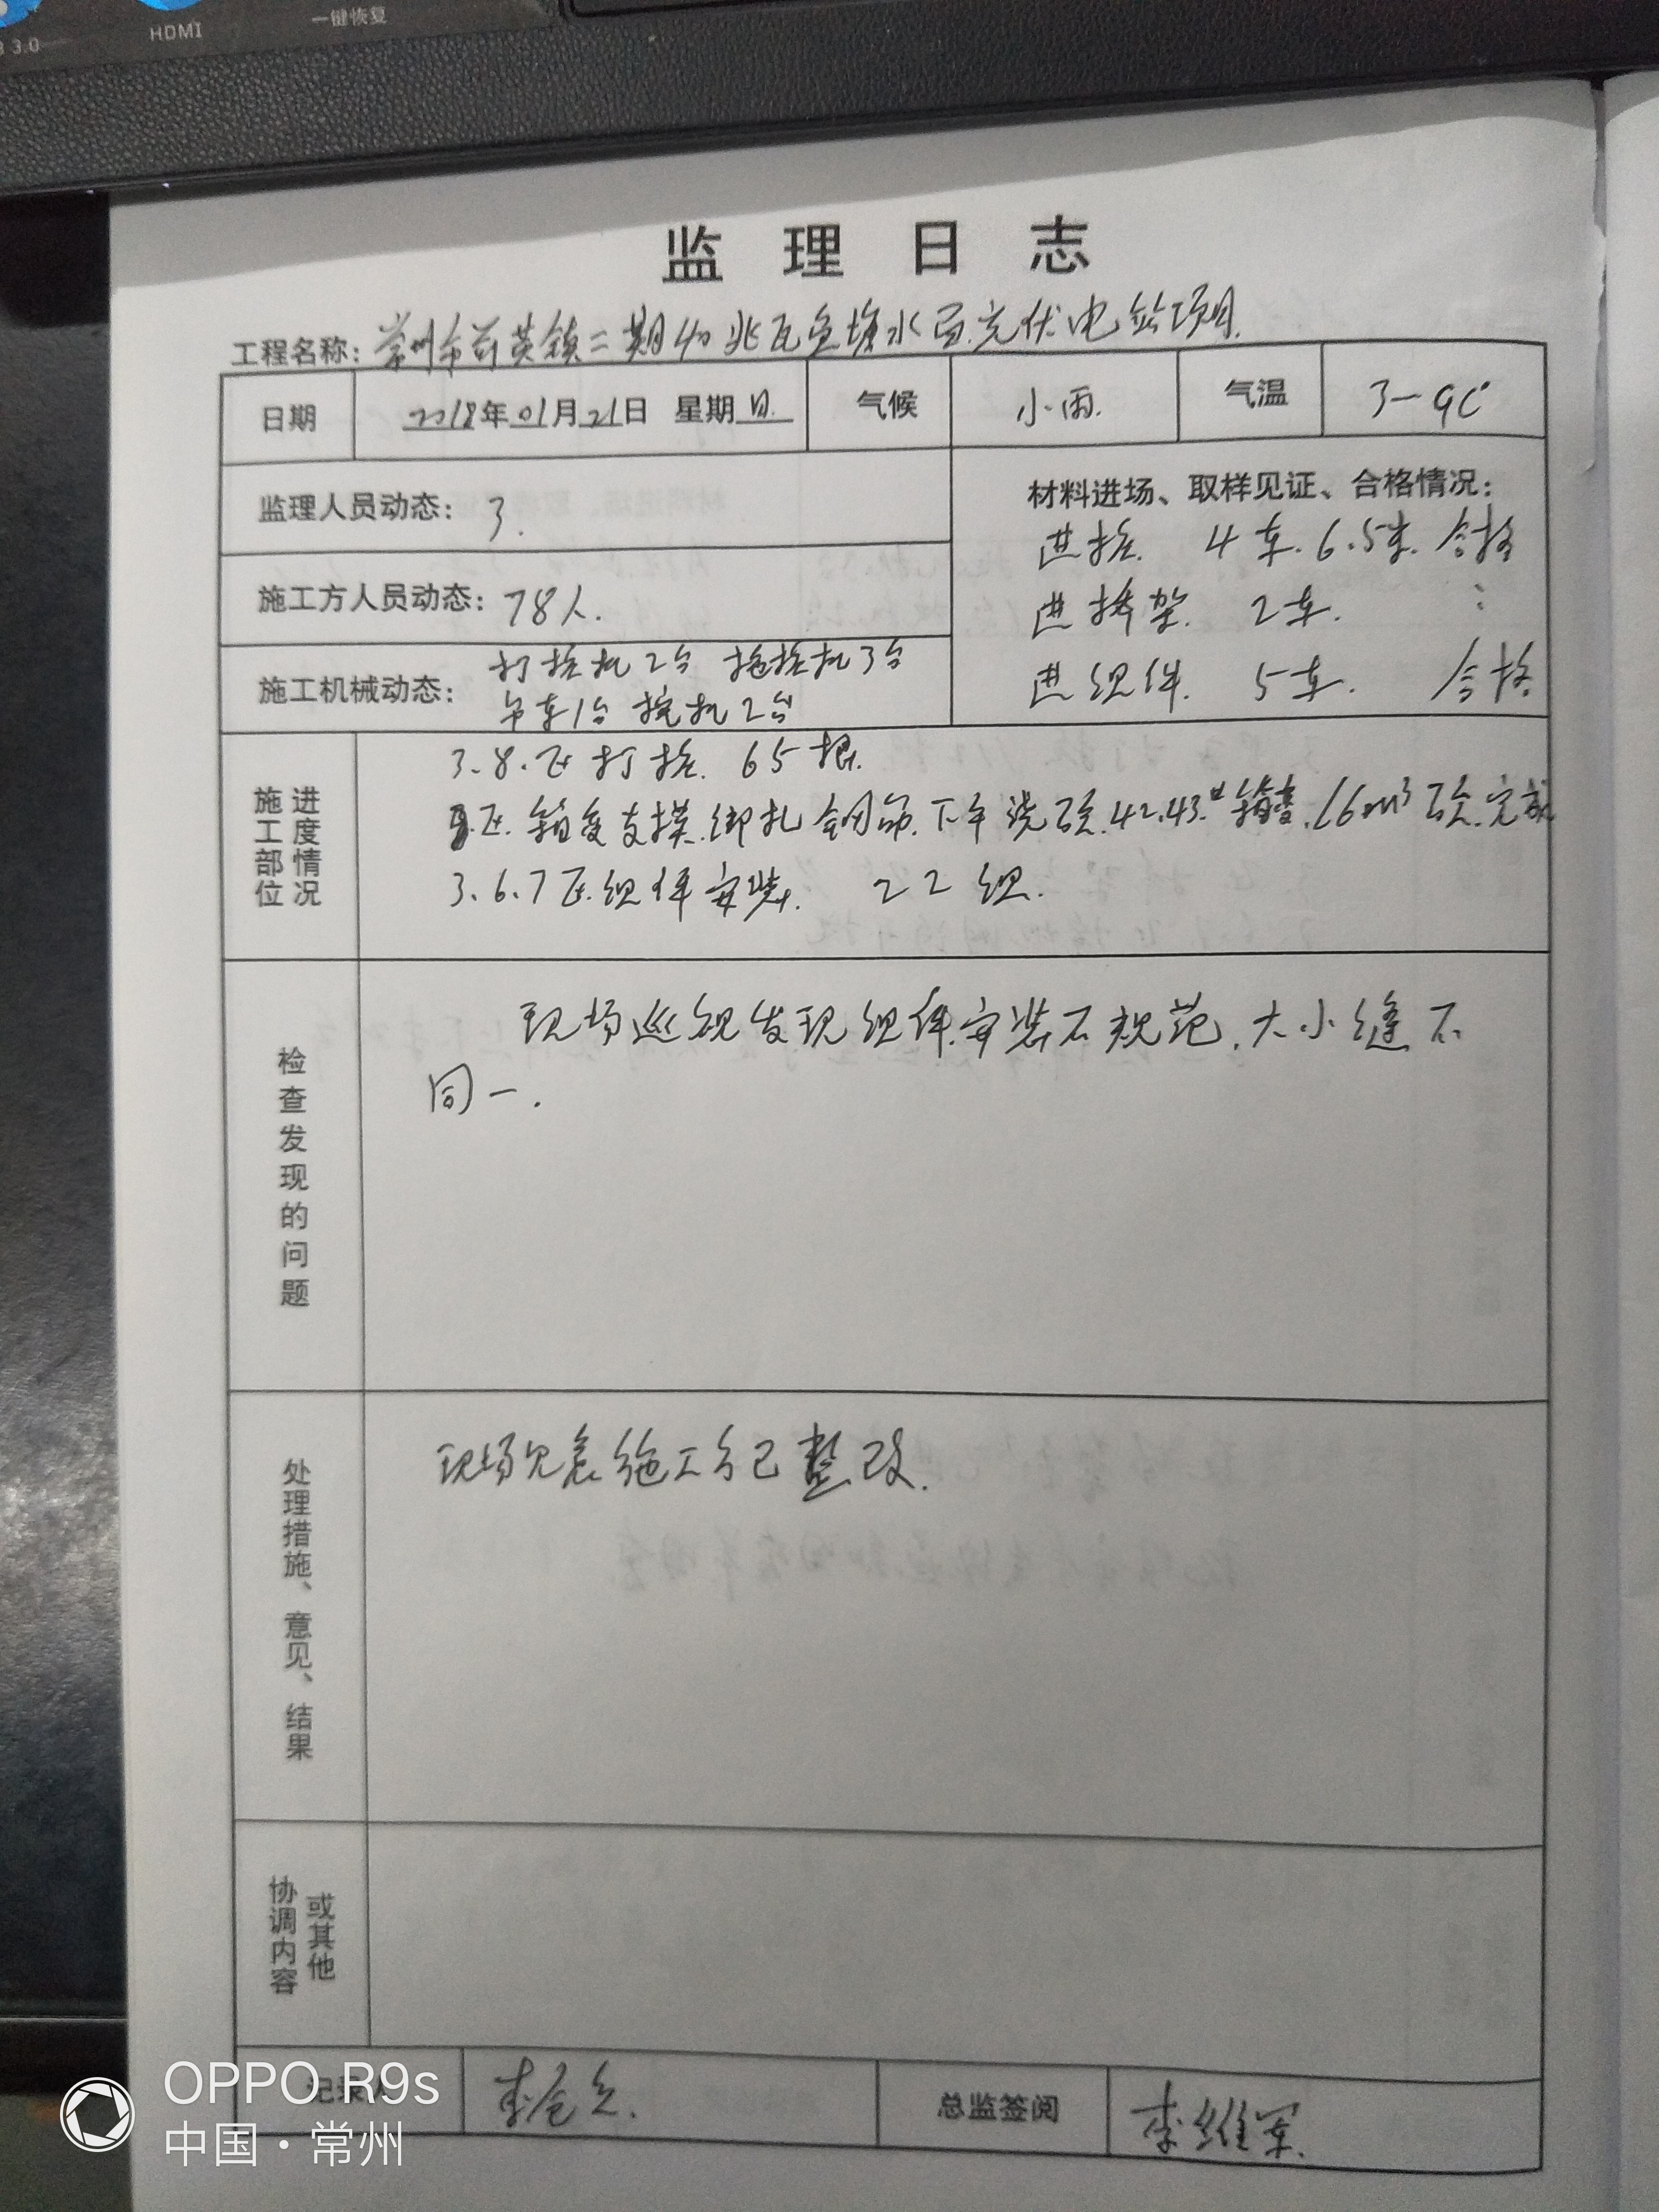 3.0
HDMI
一键恢复
监理日志
工程名称：常州市前黄镇二期40兆瓦鱼塘水面光伏电站项目.
日期 2018年01月21日 星期日. 气候 小雨. 气温 3-9C°
监理人员动态：3.
材料进场、取样见证、合格情况：
进桩. 4车. 6.5米. 合格
施工方人员动态：78人.
进桥架. 2车. :
进组件. 5车. 合格
施工机械动态：打桩机2台 拖桩机3台
吊车1台 挖机2台
施工部位 进度情况
3.8.区打桩. 65根.
区.箱变支摸.绑扎钢筋.下午浇砼.42.43.#箱变.16m³砼.完成
3.6.7区.组件安装. 22组.
检查发现的问题
现场巡视发现组件安装不规范.大小缝不
同一.
处理措施、意见、结果
现场施工方已整改.
协调内容 或其他
记录人 李
总监签阅 李维军.
OPPO R9s
中国·常州